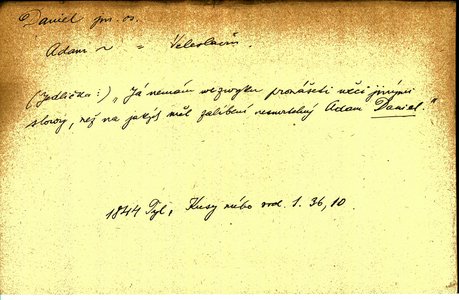 Daniel jm. os.
Adam ~ = Veleslavín.
(Jedlička:) „Já nemám ve zvyku pronášeti věci jinými
slovy, než na jakých měl zalíbení nesmrtelný Adam Daniel."
1844 Tyl, Kusy nábo 1. 36, 10.